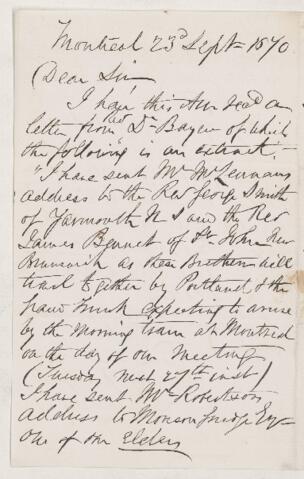 Montreal 23d Sept 1870
Dear Sir,
I have this day recd a
letter from Revd Dr Bayne of which
the following is an extract.
"I have sent Mr McLennans
address to the Rev George Smith
of Yarmouth N S and the Rev
James Bennet of St John New
Brunswick as these Brethren will
travel together by Portland & the
Grand Trunk expecting to arrive
by the morning train at Montreal
on the day of our meeting
(Tuesday next 27th inst)
I have sent Mr Robertsons
address to Monson Esq
one of our Elders